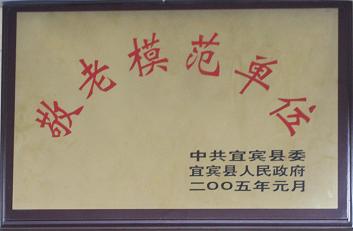 敬老模范单位
中共宜宾县委
宜宾县人民政府
二〇〇五年元月